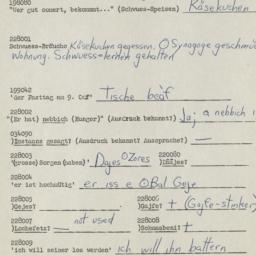 198080
"Wer gut omert, bekommt..." (Schwuos-Speisen) Käsekuchen
228001
Schwuoss-Bräuche Käsekuchen gegessen. O Synagoge geschmü
Wohnung. Schwuess=lernen gehalten
199042
'der Fasttag am 9. Oof' Tische beaf
228002
"(Er hat) nebbich (Hunger)" (Ausdruck bekannt?) Ja; a nebbich
034090
gesagt? (Ausdruck bekannt? Aussprache?) —
228003 220080
'(grosse) Sorgen (haben)' Dajes O Zores
228004
'er ist hochgiftig' er iss e O Bal Gaje
228005 228006
Gajes? — Gajfe? + (Gajfe-stinker)
228007 not used 228008
Lochetz? — Schumabeni +
228009
'ich will seiner los werden' ich will ihn battern